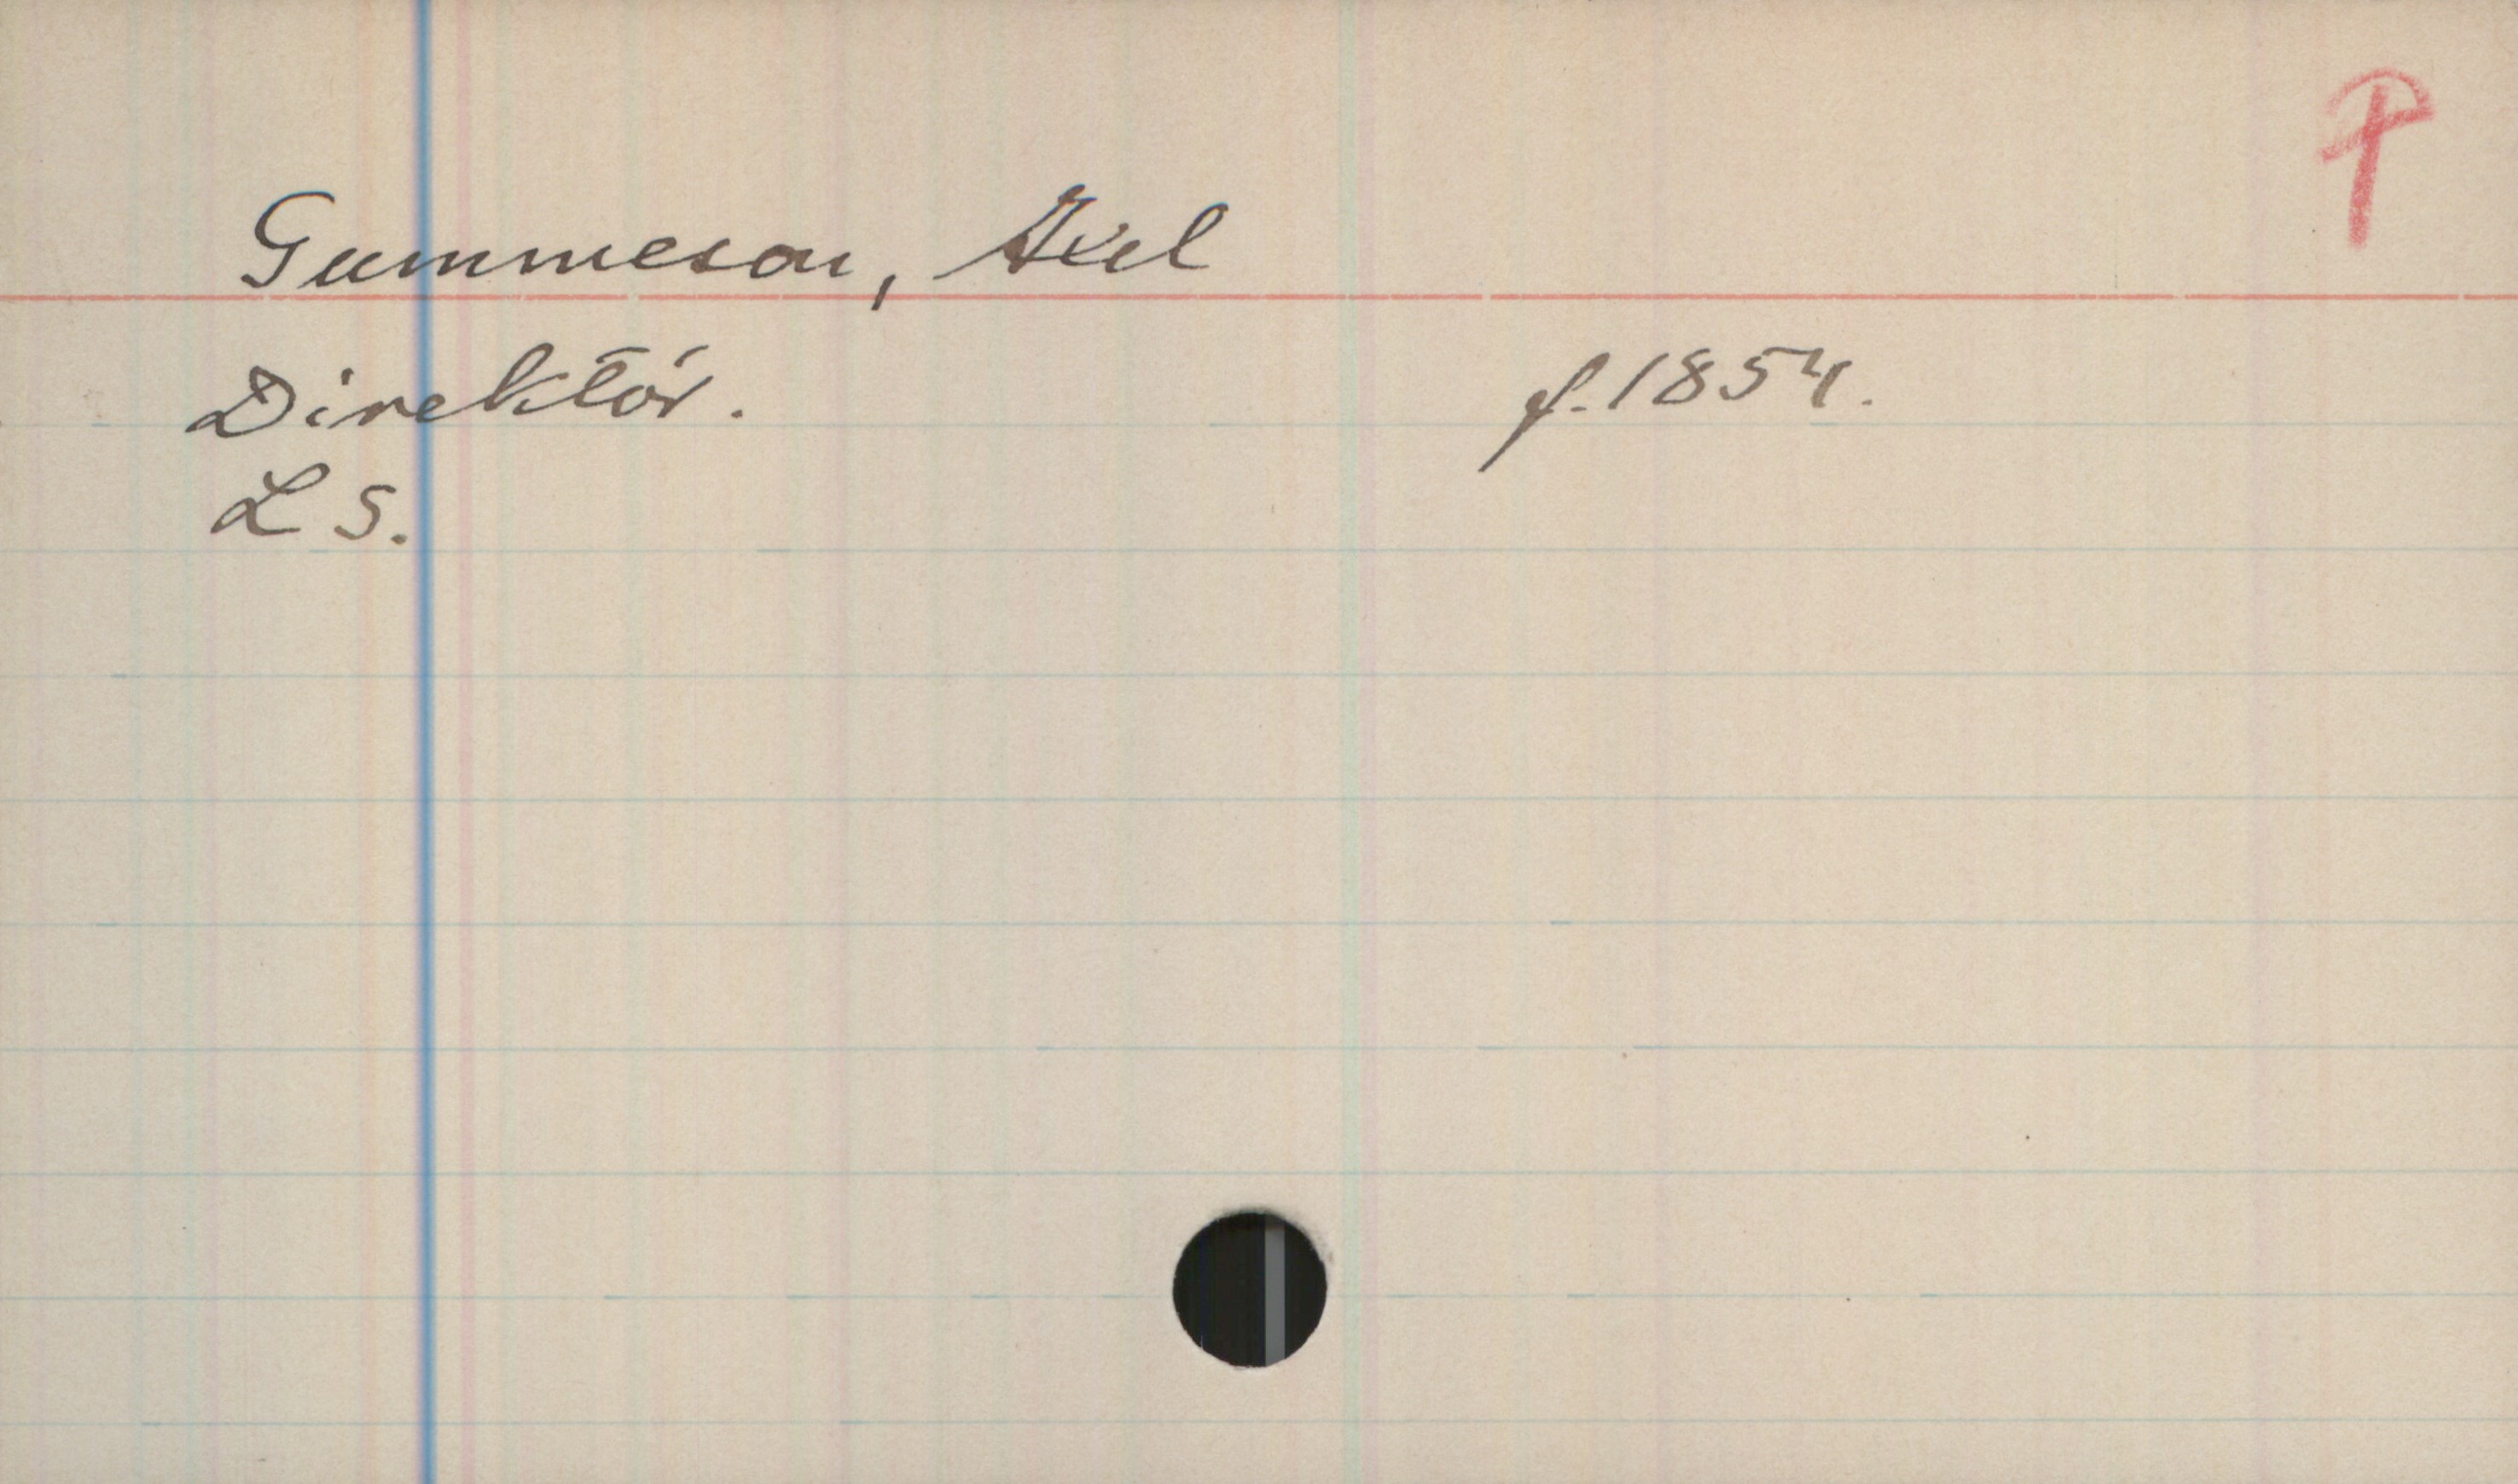 P
Gummeson, Axel
Direktör. f. 1854.
L S.